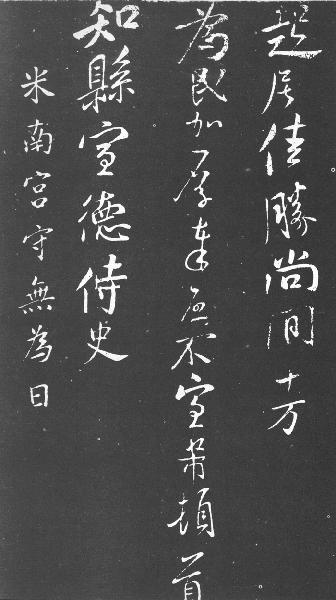 起居佳勝尚間十万
為民加厚不宣芾頓首
知縣宣德侍史
米南宮守無為日